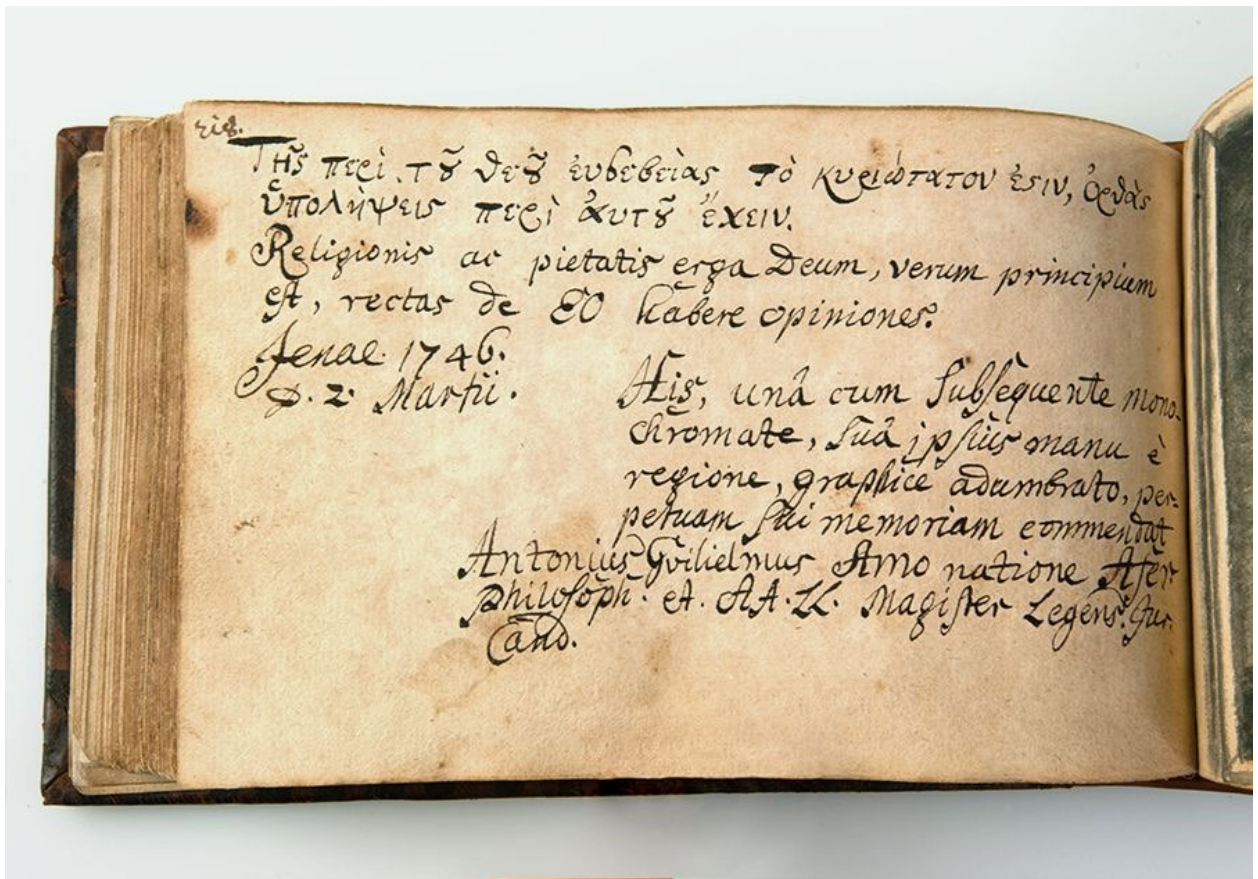 Τῆς περὶ τȣ̃ θεȣ̃ ἐυσεβείας τὸ κυριώτατον ἐϛιν, ὀρθὰς
ὑπολήψεις περὶ ἀυτȣ̃ ἔχειν.
Religionis ac pietatis erga Deum, verum principium
est, rectas de EO habere opiniones.
Jenae. 1746.
D. 2. Martii.
His, unâ cum subsequente mono-
chromate, suâ ipsius manu è
regione, graphice adumbrato, per-
petuam sui memoriam commendat
Antonius Gvilielmus Amo natione Afer
Philosoph. et. AA. LL. Magister Legens. Jur.
Cand.